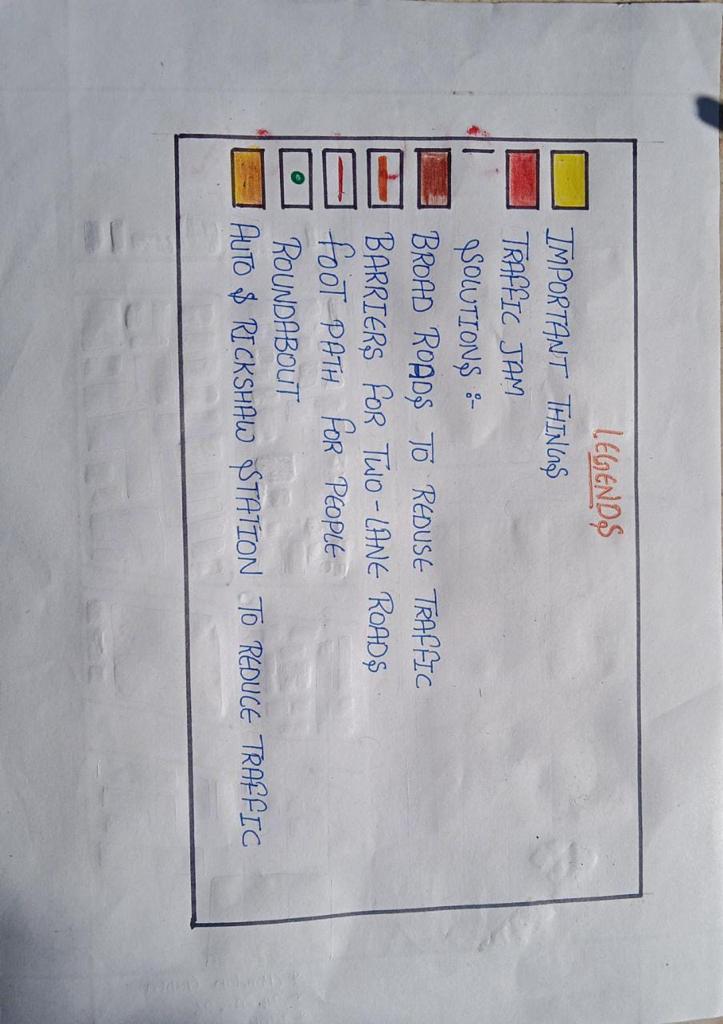 LEGENDS
IMPORTANT THINGS
TRAFFIC JAM
SOLUTIONS :-
BROAD ROADS TO REDUSE TRAFFIC
BARRIERS FOR TWO-LANE ROADS
FOOT PATH FOR PEOPLE
ROUNDABOUT
AUTO & RICKSHAW STATION TO REDUCE TRAFFIC